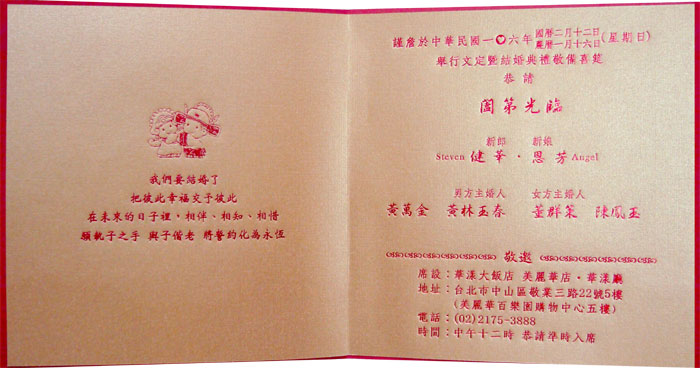 我們要結婚了
把彼此幸福交予彼此
在未來的日子裡，相伴、相知、相惜
願執子之手 與子偕老 將誓約化為永恆
謹詹於中華民國一〇六年國曆二月十二日農曆一月十六日(星期日)
舉行文定暨結婚典禮敬備喜筵
恭請
闔第光臨
新郎 新娘
Steven 健華・恩芳 Angel
男方主婚人 女方主婚人
黃萬金 黃林玉春 董群策 陳鳳玉
敬邀
席設：華漾大飯店 美麗華店・華漾廳
地址：台北市中山區敬業三路22號5樓
(美麗華百樂園購物中心五樓)
電話：(02)2175-3888
時間：中午十二時 恭請準時入席